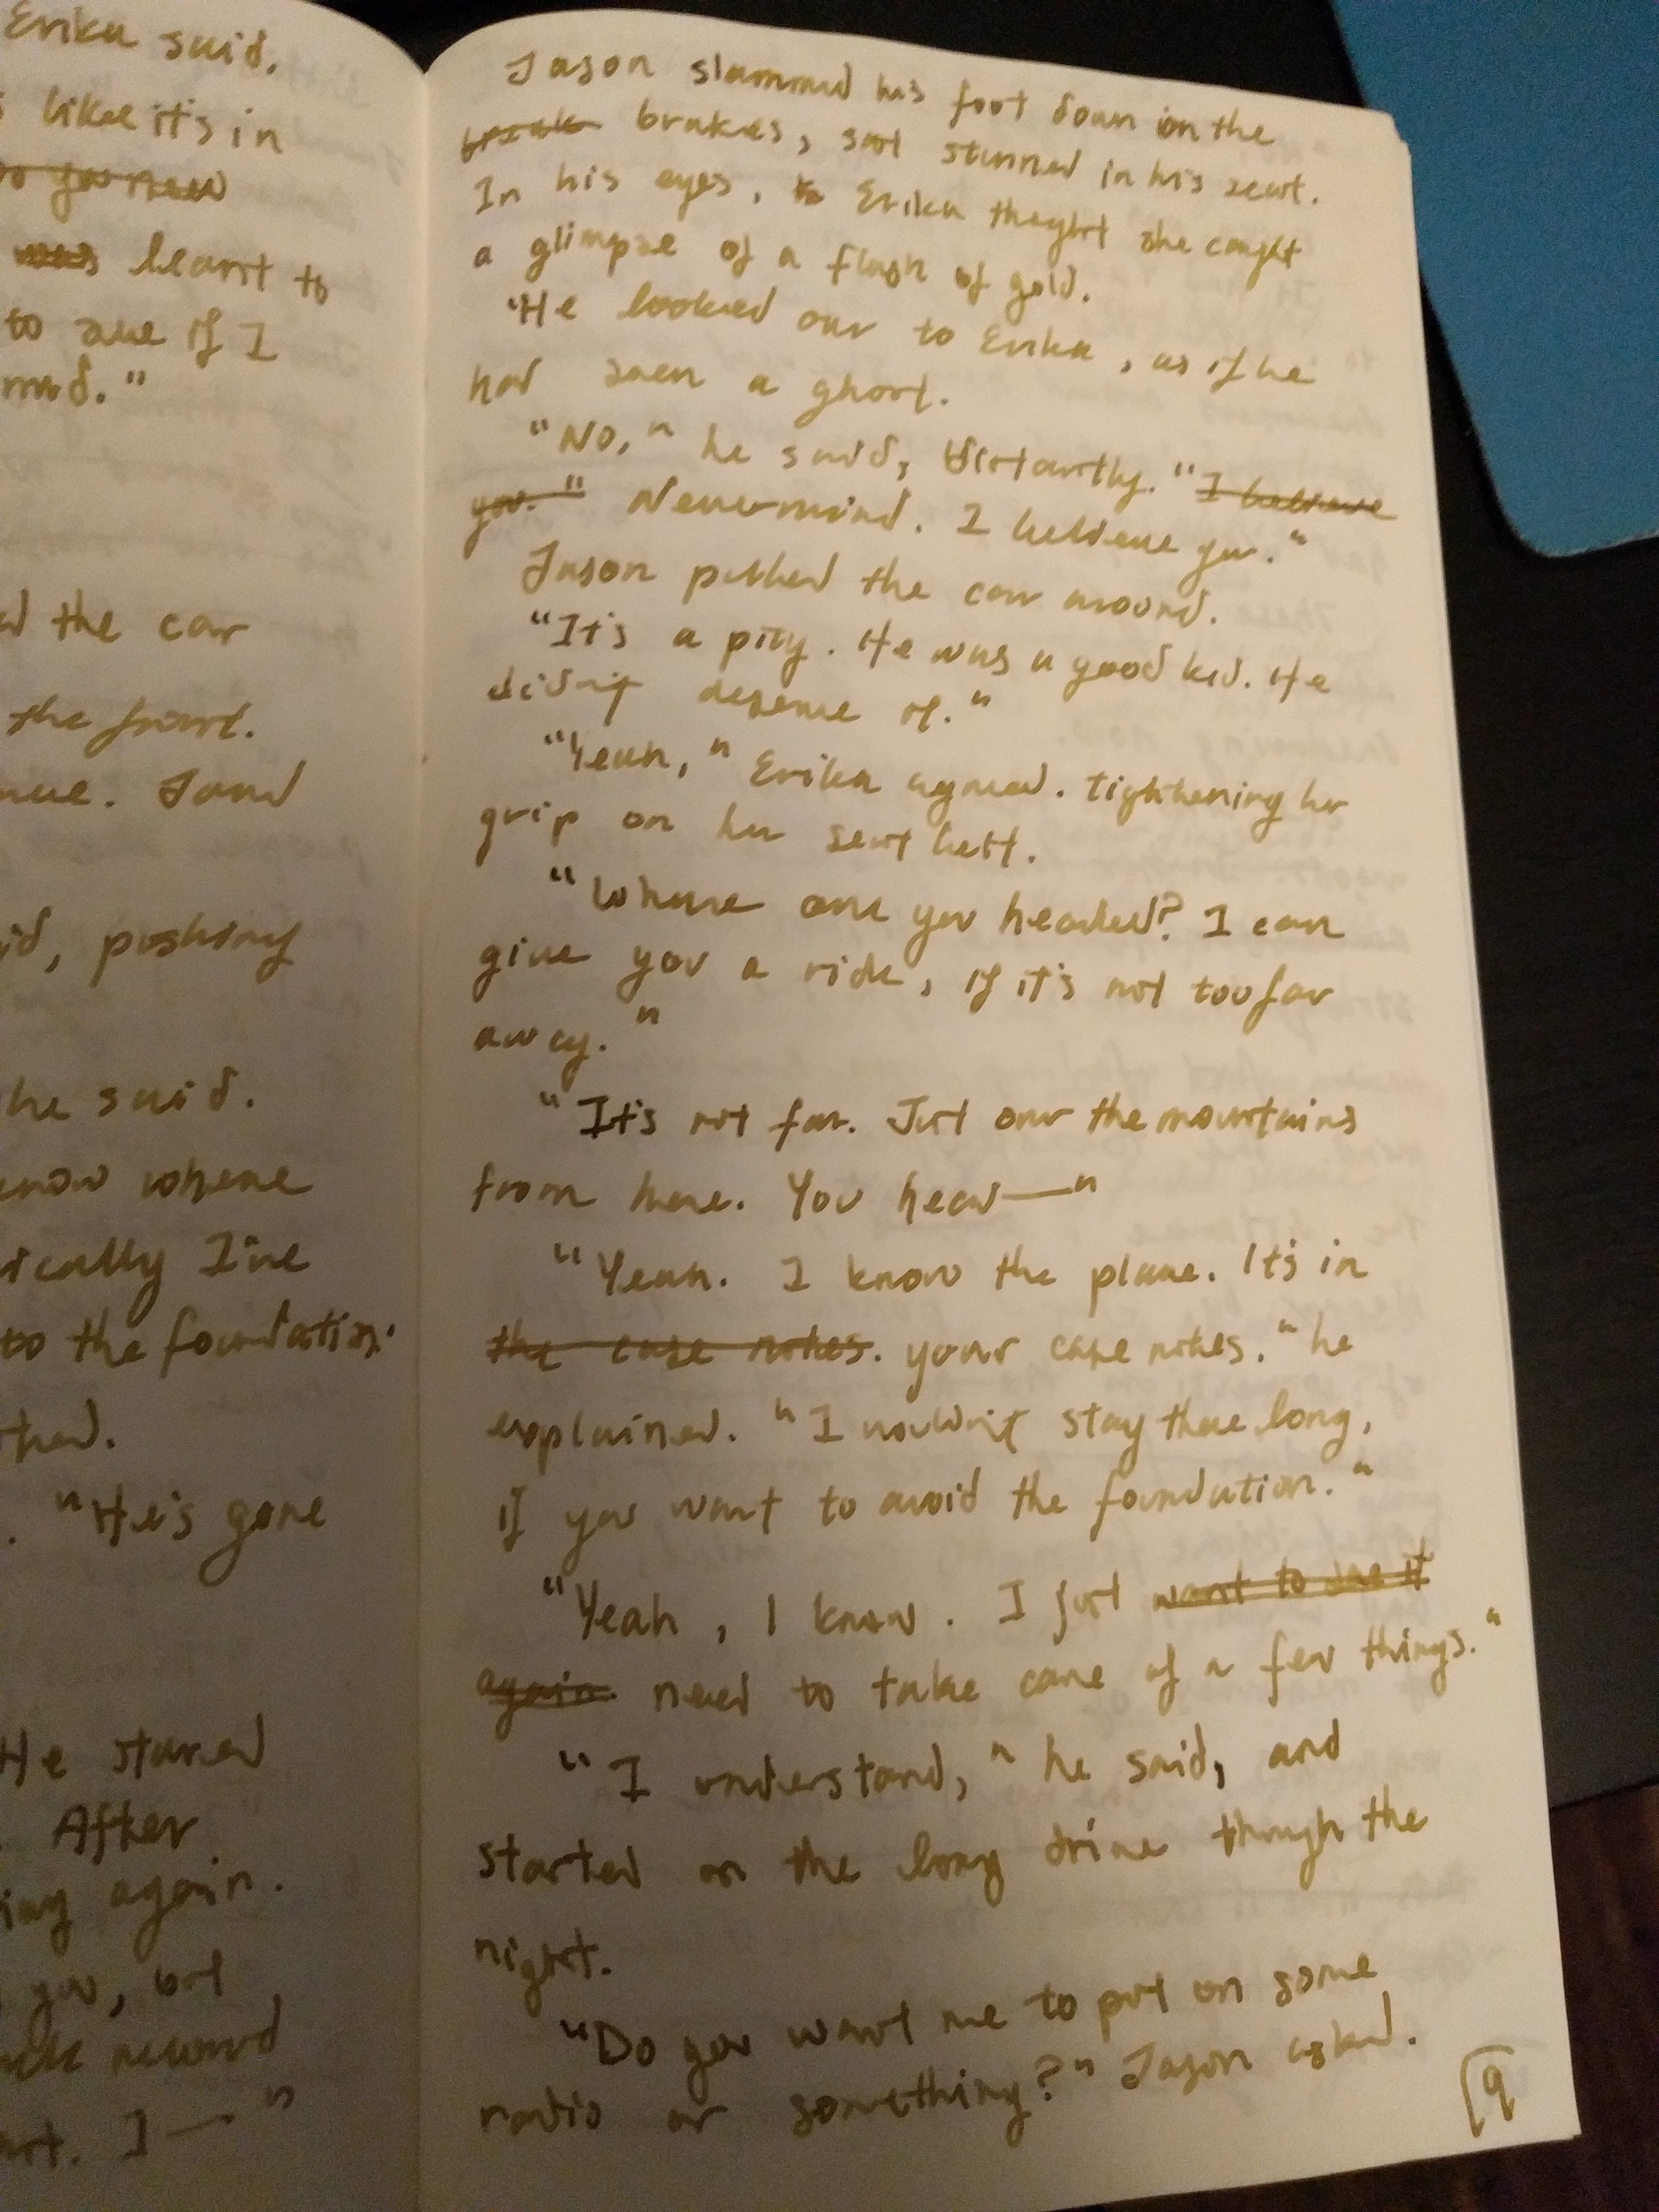 Erika said.
like it's in
do you need
was learnt to
to see if I
med."
the car
the front.
. Jand
id, pushing
he said.
know where
ically I've
to the foundation.
ther.
. "He's gone
He stared
. After
ing again.
you, but
record
art. I—"
Jason slammed his foot down on the
break brakes, sat stunned in his seat.
In his eyes, Erika thought she caught
a glimpse of a flash of gold.
"He looked over to Erika, as if he
had seen a ghost.
"No," he said, distantly. "I believe
you." Nevermind. I believe you."
Jason pulled the car around.
"It's a pity. He was a good kid. He
didn't deserve it."
"Yeah," Erika agreed. tightening her
grip on her seat belt.
"Where are you headed? I can
give you a ride, if it's not too far
away."
"It's not far. Just over the mountains
from here. You hear—"
"Yeah. I know the place. It's in
the case notes. your case notes." he
explained. "I wouldn't stay there long,
if you want to avoid the foundation."
"Yeah, I know. I just want to see it
again. need to take care of a few things."
"I understand," he said, and
started on the long drive though the
night.
"Do you want me to put on some
radio or something?" Jason asked.
19